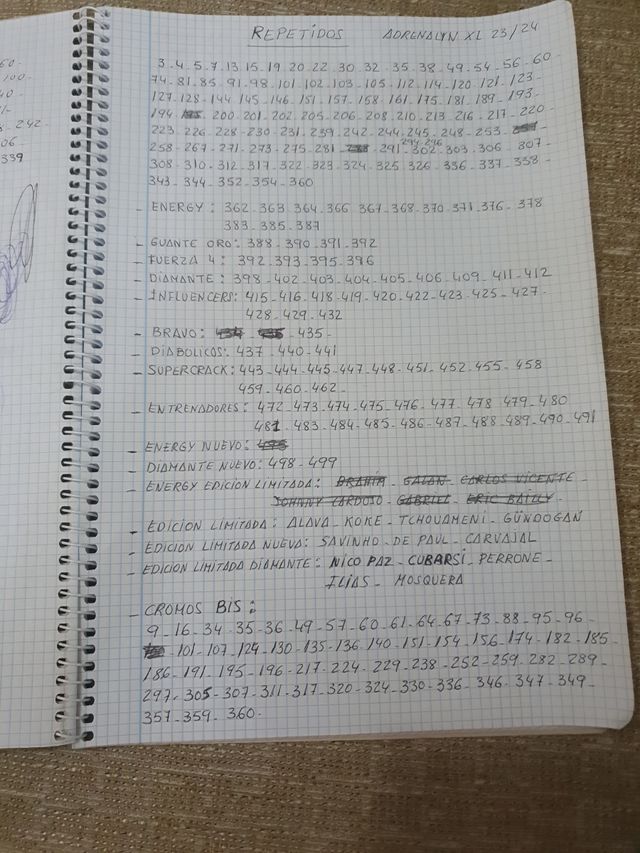 60-
100-
40-
1-
- 242-
06
339
REPETIDOS ADRENALYN XL 23/24
3-4-5-7-13-15-19-20-22-30-32-35-38-49-54-56-60
74-81-85-91-98-101-102-103-105-112-114-120-121-123-
127-128-144-145-146-151-157-158-161-175-181-189-193-
194-200-201-202-205-206-208-210-213-216-217-220-
223-226-228-230-231-239-242-244-245-248-253-
294-296
258-267-271-273-275-281-291-302-303-306-307-
308-310-312-317-322-323-324-325-326-336-337-338-
343-344-352-354-360
- ENERGY: 362-363-364-366-367-368-370-371-376-378
383-385-387
- GUANTE ORO: 388-390-391-392
- FUERZA 4: 392-393-395-396
- DIAMANTE: 398-402-403-404-405-406-409-411-412
- INFLUENCERS: 415-416-418-419-420-422-423-425-427-
428-429-432
- BRAVO: 435-
- DIABOLICOS: 437-440-441
- SUPERCRACK: 443-444-445-447-448-451-452-455-458
459-460-462-
- ENTRENADORES: 472-473-474-475-476-477-478-479-480
481-483-484-485-486-487-488-489-490-491
- ENERGY NUEVO: 495
- DIAMANTE NUEVO: 498-499
- ENERGY EDICION LIMITADA: BRAHIM - GALAN - CARLOS VICENTE -
JOHNNY CARDOSO - GABRIEL - ERIC BAILLY -
- EDICION LIMITADA: ALAVA - KOKE - TCHOUAMENI - GÜNDOGAN
- EDICION LIMITADA NUEVA: SAVINHO - DE PAUL - CARVAJAL
- EDICION LIMITADA DIAMANTE: NICO PAZ - CUBARSI - PERRONE -
ILIAS - MOSQUERA
- CROMOS BIS:
9-16-34-35-36-49-57-60-61-64-67-73-88-95-96-
101-107-124-130-135-136-140-151-154-156-174-182-185-
186-191-195-196-217-224-229-238-252-259-282-289-
297-305-307-311-317-320-324-330-336-346-347-349-
357-359-360-